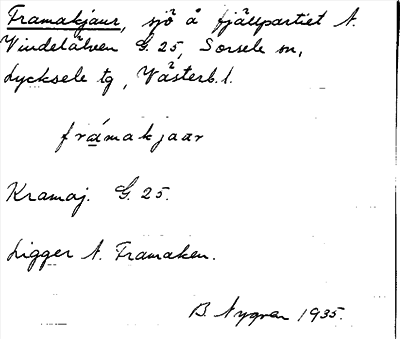 Framakjaur, sjö å fjällpartiet N.
Vindelälven G. 25, Sorsele sn,
Lycksele tg, Västerb. l.
framakjaar
Kramaj. G. 25.
Ligger N. Framaken.
B. Nygren 1935.